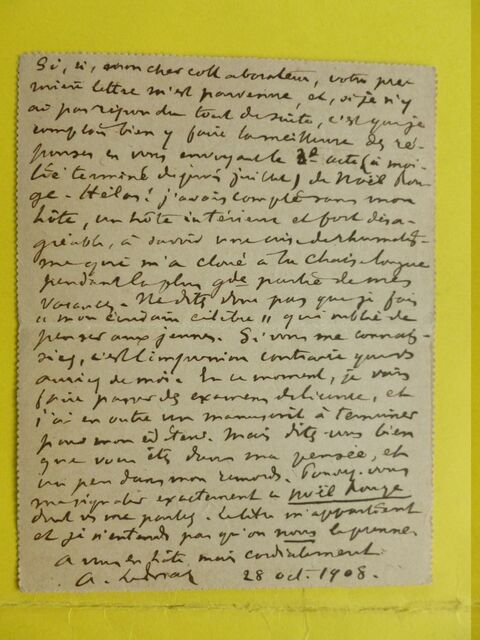 Si, si, mon cher collaborateur, votre pre-
mière lettre m'est parvenue, et, si je n'y
ai pas répondu tout de suite, c'est que je
comptais bien y faire la meilleure des ré-
ponses en vous envoyant le 2e acte (à moi-
tié terminé depuis juillet) de Noël Rou-
ge. Hélas! j'avais compté sans mon
hôte, un hôte intérieur et fort désa-
gréable, à savoir une crise de rhumatis-
me qui m'a cloué à la chaise-longue
pendant la plus gde partie de mes
vacances. Ne dites donc pas que je fais
"mon écrivain célèbre" qui oublie de
penser aux jeunes. Si vous me connais-
siez, c'est l'impression contraire que vous
auriez de moi. En ce moment, je vais
faire passer des examens de licence, et
j'ai en outre un manuscrit à terminer
pour mon éditeur. Mais dites-vous bien
que vous êtes dans ma pensée, et
un peu dans mon remords. Pouvez-vous
me signaler exactement ce Noël Rouge
dont vs me parlez. Le titre m'appartient
et je n'entends pas qu'on nous le prenne.
A vous en hâte, mais cordialement
A. 28 oct. 1908.